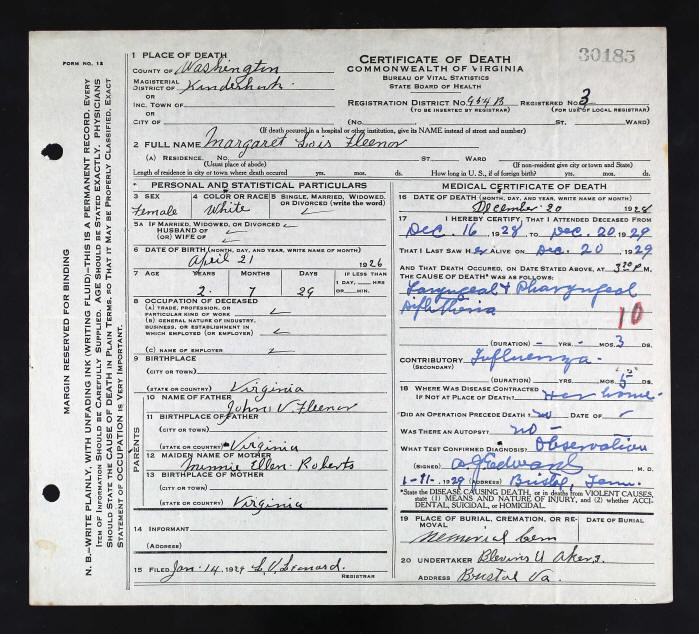 FORM NO. 12
MARGIN RESERVED FOR BINDING
N. B.—WRITE PLAINLY, WITH UNFADING INK (WRITING FLUID)—THIS IS A PERMANENT RECORD. EVERY
ITEM OF INFORMATION SHOULD BE CAREFULLY SUPPLIED. AGE SHOULD BE STATED EXACTLY. PHYSICIANS
SHOULD STATE THE CAUSE OF DEATH IN PLAIN TERMS, SO THAT IT MAY BE PROPERLY CLASSIFIED. EXACT
STATEMENT OF OCCUPATION IS VERY IMPORTANT.
1 PLACE OF DEATH
COUNTY OF Washington
MAGISTERIAL
DISTRICT OF Kinderhook
OR
INC. TOWN OF
OR
CITY OF
CERTIFICATE OF DEATH
COMMONWEALTH OF VIRGINIA
BUREAU OF VITAL STATISTICS
STATE BOARD OF HEALTH
30185
REGISTRATION DISTRICT NO. 954B REGISTERED NO. 3
(TO BE INSERTED BY REGISTRAR) (FOR USE OF LOCAL REGISTRAR)
(No. ST. WARD
(If death occurred in a hospital or other institution, give its NAME instead of street and number)
2 FULL NAME Margaret Lois Fleenor
(A) RESIDENCE. No. ST. WARD
(Usual place of abode) (If non-resident give city or town and State)
Length of residence in city or town where death occurred yrs. mos. ds. How long in U. S., if of foreign birth yrs. mos. ds.
PERSONAL AND STATISTICAL PARTICULARS
3 SEX 4 COLOR OR RACE 5 SINGLE, MARRIED, WIDOWED,
OR DIVORCED (write the word)
Female White
5A IF MARRIED, WIDOWED, OR DIVORCED
HUSBAND OF
(OR) WIFE OF
6 DATE OF BIRTH (MONTH, DAY, AND YEAR, WRITE NAME OF MONTH)
April 21 1926
7 AGE YEARS MONTHS DAYS IF LESS THAN
1 DAY, HRS
OR MIN.
2 7 29
8 OCCUPATION OF DECEASED
(A) TRADE, PROFESSION, OR
PARTICULAR KIND OF WORK
(B) GENERAL NATURE OF INDUSTRY,
BUSINESS, OR ESTABLISHMENT IN
WHICH EMPLOYED (OR EMPLOYER)
(C) NAME OF EMPLOYER
9 BIRTHPLACE
(CITY OR TOWN)
(STATE OR COUNTRY) Virginia
PARENTS
10 NAME OF FATHER
John V Fleenor
11 BIRTHPLACE OF FATHER
(CITY OR TOWN)
(STATE OR COUNTRY) Virginia
12 MAIDEN NAME OF MOTHER
Minnie Ellen Roberts
13 BIRTHPLACE OF MOTHER
(CITY OR TOWN)
(STATE OR COUNTRY) Virginia
14 INFORMANT
(ADDRESS)
15 FILED Jan. 14, 1929 L. V. Leonard.
REGISTRAR
MEDICAL CERTIFICATE OF DEATH
16 DATE OF DEATH (MONTH, DAY, AND YEAR, WRITE NAME OF MONTH)
December 20 1928
17 I HEREBY CERTIFY, THAT I ATTENDED DECEASED FROM
Dec. 16 1928 TO Dec. 20 1929
THAT I LAST SAW Her ALIVE ON Dec. 20 1929
AND THAT DEATH OCCURED, ON DATE STATED ABOVE, AT P M.
THE CAUSE OF DEATH* WAS AS FOLLOWS:
Laryngeal & Pharyngeal
Diphtheria
10
(DURATION) - YRS. - MOS. 3 DS.
CONTRIBUTORY Influenza
(SECONDARY)
(DURATION) YRS. MOS. 5 DS.
18 WHERE WAS DISEASE CONTRACTED
IF NOT AT PLACE OF DEATH? Her home
DID AN OPERATION PRECEDE DEATH? no DATE OF
WAS THERE AN AUTOPSY? no
WHAT TEST CONFIRMED DIAGNOSIS? Observation
(SIGNED) Edwards M. D.
1-11-1929 (ADDRESS) Bristol, Tenn.
*State the DISEASE CAUSING DEATH, or in deaths from VIOLENT CAUSES,
state (1) MEANS AND NATURE OF INJURY, and (2) whether ACCI-
DENTAL, SUICIDAL, or HOMICIDAL.
19 PLACE OF BURIAL, CREMATION, OR RE- DATE OF BURIAL
MOVAL
Memorial Cem
20 UNDERTAKER Blevins U Akers.
ADDRESS Bristol Va.